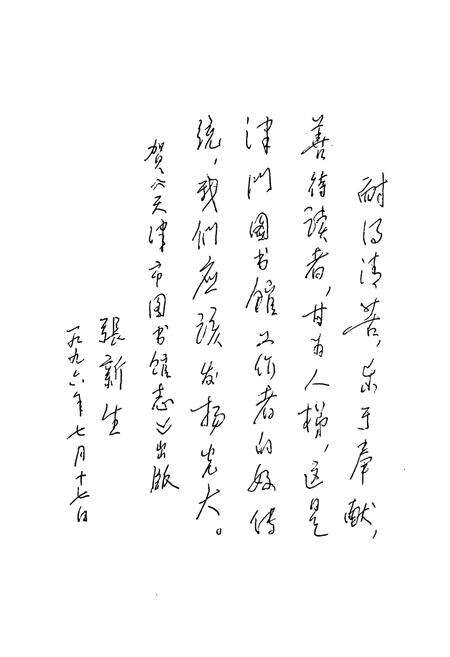 耐得清苦，乐于奉献，
善待读者，甘为人梯，这是
津门图书馆工作者的好传
统，我们应该发扬光大。
贺《天津市图书馆志》出版
張新生
一九九六年七月十七日